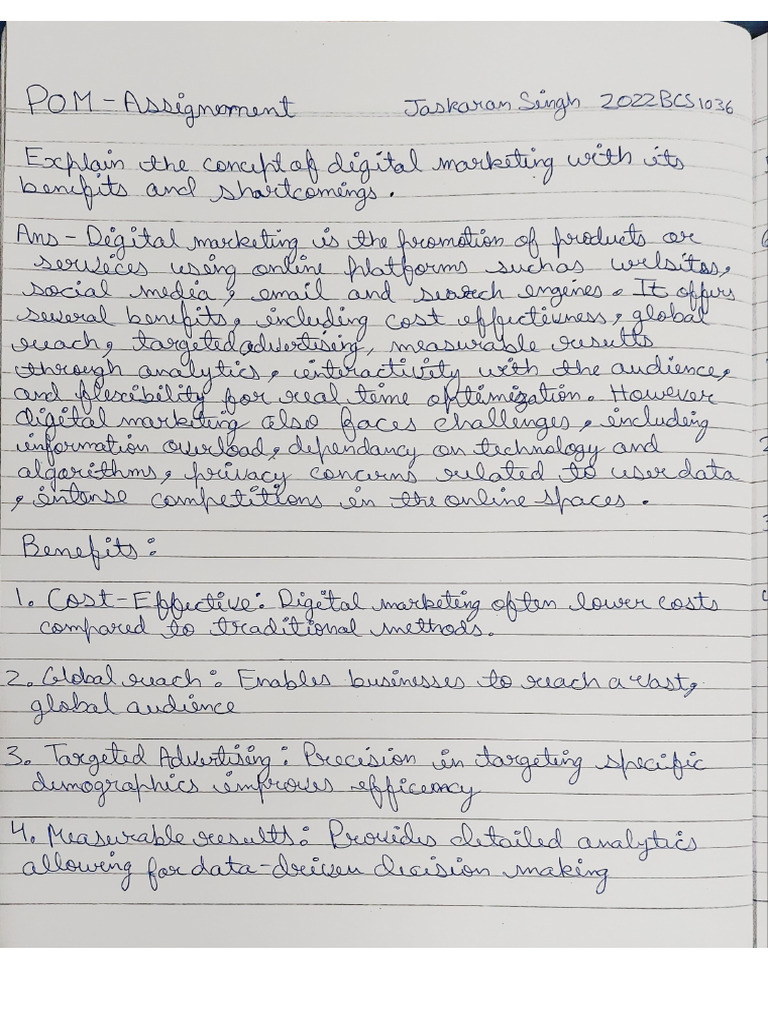 POM - Assignement
Jaskaran Singh 2022BCS1036
Explain the concept of digital marketing with its
benefits and shortcomings.
Ans - Digital marketing is the promotion of products or
services using online platforms such as websites,
social media, email and search engines. It offers
several benefits, including cost effectiveness, global
reach, targeted advertising, measurable results
through analytics, interactivity with the audience,
and flexibility for real time optimization. However
digital marketing also faces challenges, including
information overload, dependancy on technology and
algorithms, privacy concerns related to user data
, intense competitions in the online spaces.
Benefits:
1. Cost-Effective: Digital marketing often lower costs
compared to traditional methods.
2. Global reach: Enables businesses to reach a vast,
global audience
3. Targeted Advertising: Precision in targeting specific
demographics improves efficency
4. Measurable results: Provides detailed analytics
allowing for data-driven decision making